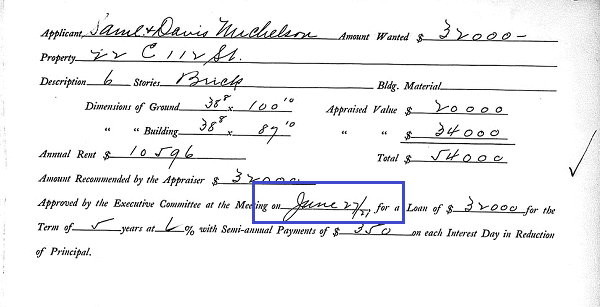 Applicant, Saml & Davis Michelson Amount Wanted $ 32000-
Property 22 E 112 St.
Description 6 Stories Brick Bldg. Material
Dimensions of Ground 38⁸ x 100¹⁰ Appraised Value $ 20000
" " Building 38⁸ x 87¹⁰ " " $ 34000
Annual Rent $ 10596 Total $ 54000
Amount Recommended by the Appraiser $ 32000
Approved by the Executive Committee at the Meeting on June 27/27 for a Loan of $ 32000 for the
Term of 5 years at 6 % with Semi-annual Payments of $ 350 on each Interest Day in Reduction
of Principal.